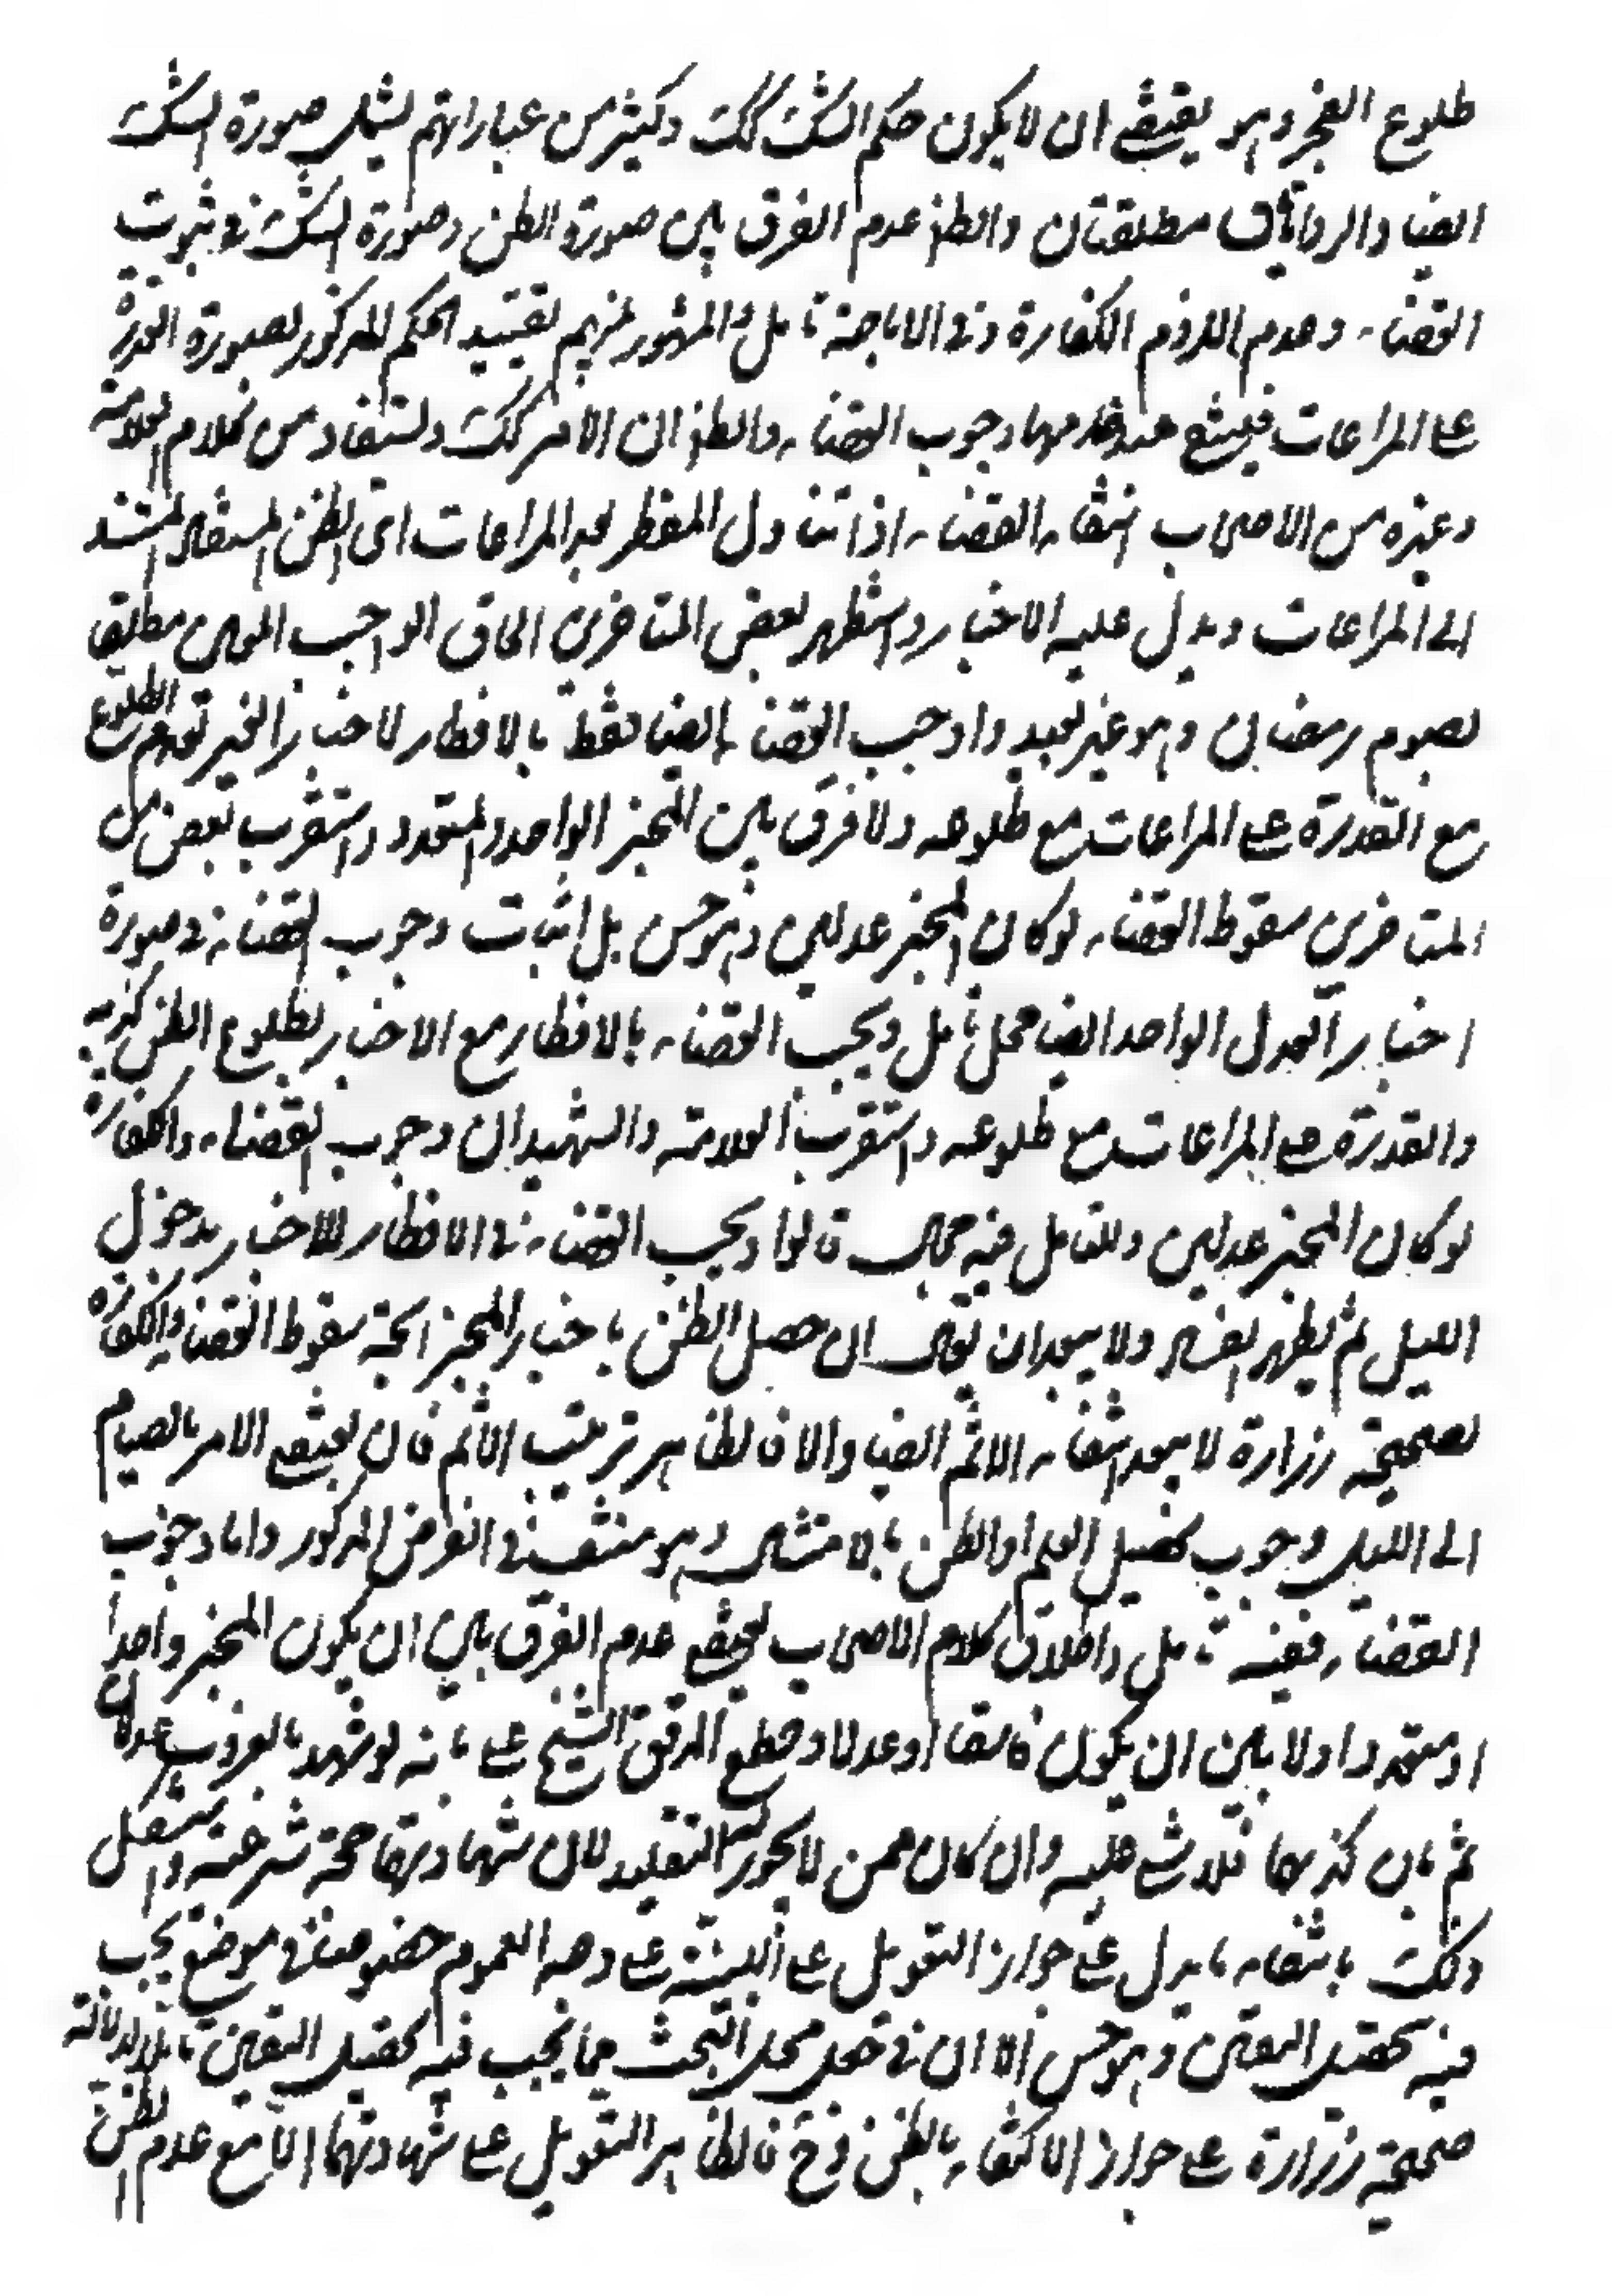 طلوع الفجر وهو يقتضى ان لا يكون حكم الشك كك وكثير من عباراتهم يشمل صورة الشك
ايضا والروايتان مطلقتان والظ عدم الفرق بين صورة الظن وصورة الشك في ثبوت
القضاء وعدم اللزوم الكفارة وفي الاباحة تامل والمشهور بينهم تقييد الحكم المذكور بصورة القدرة
على المراعات فينتفي عند عدمها وجوب القضاء والظ ان الامر كك ويستفاد من كلام العلامة
وغيره من الاصحاب انتفاء القضاء اذا تناول المفطر بعد المراعات اى الظن المستند
الى المراعات ويدل عليه الاخبار واستظهر بعض المتاخرين الحاق الواجب المعين مطلقا
بصوم رمضان وهو غير بعيد واوجب القضاء ايضا فقط بالافطار لاخبار الغير بعدم الطلوع
مع القدرة على المراعات مع طلوعه ولا فرق بين المخبر الواحد والمتعدد واستقرب بعض من
المتاخرين سقوط القضاء لو كان المخبر عدلين وهو حسن بل اثبات وجوب القضاء في صورة
اخبار العدل الواحد ايضا محل تامل ويجب القضاء بالافطار مع الاخبار بطلوع الظن كذبه
والقدرة على المراعات مع طلوعه واستقرب العلامة والشهيدان وجوب القضاء والكفارة
لو كان المخبر عدلين وللتامل فيه مجال قالوا ويجب القضاء في الافطار للاخبار بدخول
الليل ثم يظهر الفساد ولا يبعد ان يقال ان حصل الظن باخبار المخبر اتجه سقوط القضاء والكفارة
لصحيحة زرارة لا يبعد انتفاء الاثم ايضا والا فالظاهر ترتب الاثم فان مقتضى الامر بالصيام
الى الليل وجوب تحصيل العلم او الظن بالامتثال وهو منتف في الفرض المذكور واما وجوب
القضاء ففيه تامل واطلاق كلام الاصحاب يقتضى عدم الفرق بين ان يكون المخبر واحدا
او متعددا ولا بين ان يكون فاسقا او عدلا وقطع المدقق الشيخ على بانه لو شهد بالغروب عدلان
ثم بان كذبهما فلا شئ عليه وان كان ممن لا يجوز له التقليد لان شهادتهما حجة شرعية واستشكل
ذلك بانتفاء ما يدل على جواز التعويل على البينة على وجه العموم خصوصا في موضع يجب
فيه تحصيل اليقين وهو حسن الا ان في جعل محل البحث مما يجب فيه تحصيل اليقين تاملا لدلالة
صحيحة زرارة على جواز الاكتفاء بالظن وح فالظاهر التعويل على شهادتهما الا مع عدم الظن